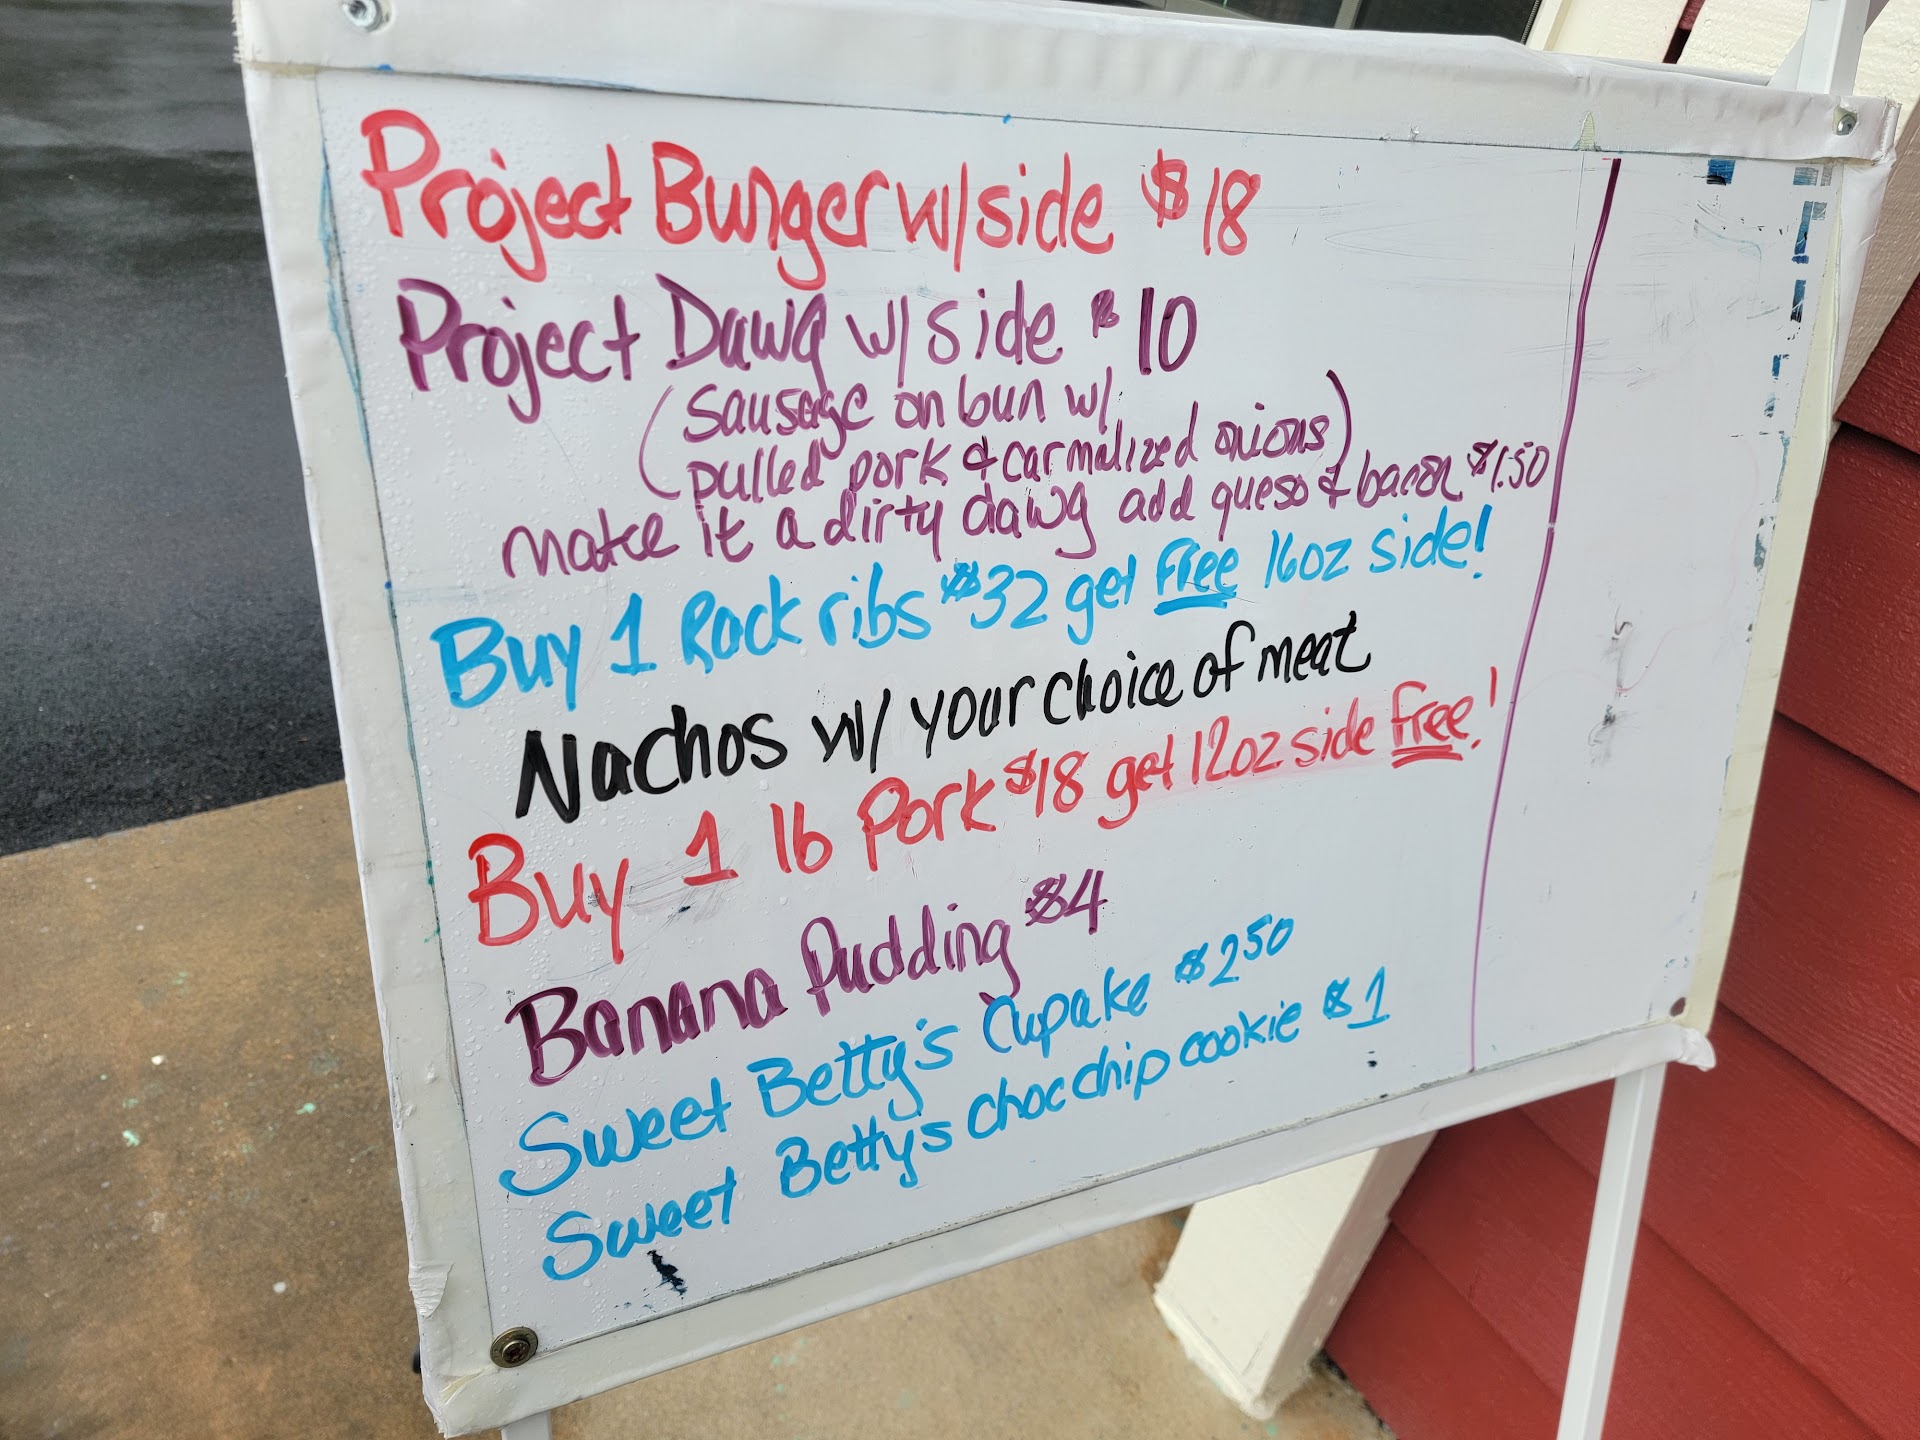 Project Burger w/side $18
Project Dawg w/side $10
(sausage on bun w/
pulled pork & carmalized onions)
make it a dirty dawg add queso & bacon $1.50
Buy 1 Rack ribs $32 get Free 16oz side!
Nachos w/ your choice of meat
Buy 1 lb Pork $18 get 12oz side free!
Banana Pudding $4
Sweet Betty's Cupake $2.50
Sweet Betty's choc chip cookie $1